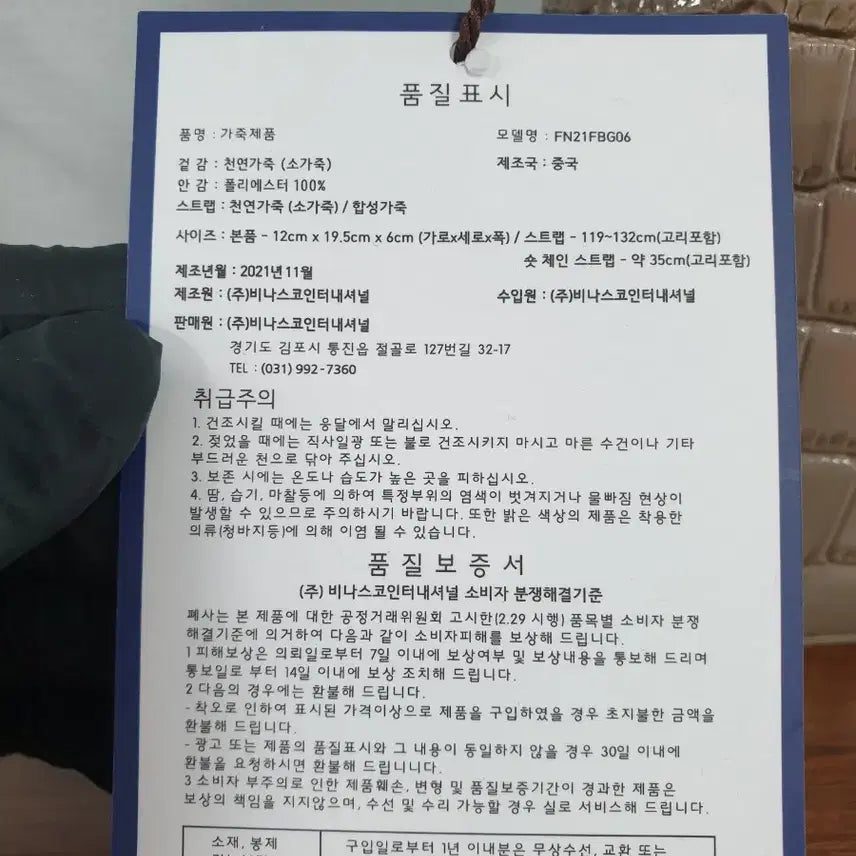 품질표시
품명 : 가죽제품 모델명 : FN21FBG06
겉 감 : 천연가죽 (소가죽) 제조국 : 중국
안 감 : 폴리에스터 100%
스트랩 : 천연가죽 (소가죽) / 합성가죽
사이즈 : 본품 - 12cm x 19.5cm x 6cm (가로x세로x폭) / 스트랩 - 119~132cm(고리포함)
숏 체인 스트랩 - 약 35cm(고리포함)
제조년월 : 2021년 11월
제조원 : (주)비나스코인터내셔널 수입원 : (주)비나스코인터내셔널
판매원 : (주)비나스코인터내셔널
경기도 김포시 통진읍 절골로 127번길 32-17
TEL : (031) 992-7360
취급주의
1. 건조시킬 때에는 응달에서 말리십시오.
2. 젖었을 때에는 직사일광 또는 불로 건조시키지 마시고 마른 수건이나 기타
부드러운 천으로 닦아 주십시오.
3. 보존 시에는 온도나 습도가 높은 곳을 피하십시오.
4. 땀, 습기, 마찰등에 의하여 특정부위의 염색이 벗겨지거나 물빠짐 현상이
발생할 수 있으므로 주의하시기 바랍니다. 또한 밝은 색상의 제품은 착용한
의류(청바지등)에 의해 이염 될 수 있습니다.
품질보증서
(주) 비나스코인터내셔널 소비자 분쟁해결기준
폐사는 본 제품에 대한 공정거래위원회 고시한(2.29 시행) 품목별 소비자 분쟁
해결기준에 의거하여 다음과 같이 소비자피해를 보상해 드립니다.
1 피해보상은 의뢰일로부터 7일 이내에 보상여부 및 보상내용을 통보해 드리며
통보일로 부터 14일 이내에 보상 조치해 드립니다.
2 다음의 경우에는 환불해 드립니다.
- 착오로 인하여 표시된 가격이상으로 제품을 구입하였을 경우 초지불한 금액을
환불해 드립니다.
- 광고 또는 제품의 품질표시와 그 내용이 동일하지 않을 경우 30일 이내에
환불을 요청하시면 환불해 드립니다.
3 소비자 부주의로 인한 제품훼손, 변형 및 품질보증기간이 경과한 제품은
보상의 책임을 지지않으며, 수선 및 수리 가능할 경우 실로 서비스해 드립니다.
소재, 봉제 구입일로부터 1년 이내분은 무상수선, 교환 또는